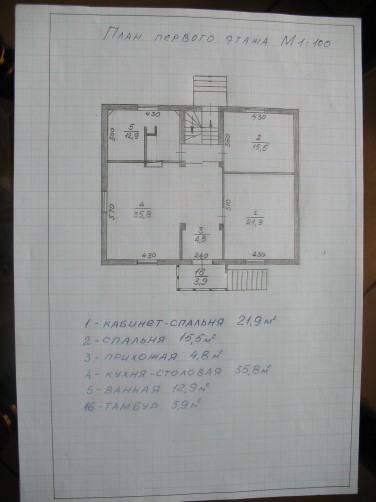 План первого этажа М 1:100
430
430
5
12,9
300
360
2
15,5
4
35,8
570
510
1
21,9
3
4,8
430
240
430
16
5,9
1 - КАБИНЕТ-СПАЛЬНЯ 21,9 м²
2 - СПАЛЬНЯ 15,5 м²
3 - ПРИХОЖАЯ 4,8 м²
4 - КУХНЯ-СТОЛОВАЯ 35,8 м²
5 - ВАННАЯ 12,9 м²
16 - ТАМБУР 5,9 м²